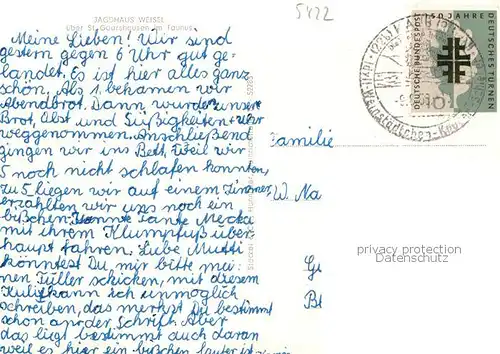 JAGDHAUS WEISEL
über St. Goarshausen im Taunus
5422
Meine Lieben! Wir sind
gestern gegen 6 Uhr gut ge-
landet. Es ist hier alles ganz
schön. Als 1. bekamen wir
Abendbrot. Dann wurde unser
Brot, Obst und Süßigkeiten
weggenommen. Anschließend
gingen wir ins Bett, weil wir
5 noch nicht schlafen konnten,
zu 5 liegen wir auf einem Zimmer,
erzählten wir uns noch ein
bißchen. Konnte Tante
mit ihrem Klumpfuß über-
haupt fahren. Liebe Mutti
könntest Du mir bitte mei-
nen Füller schicken, mit diesem
Kuli kann ich unmöglich
schreiben, das merkst Du bestimmt
schon an der Schrift. Aber
das liegt bestimmt auch daran
weil es hier ein bißchen lauter ist
Familie
W. Na
Gr
Bt
150 JAHRE
DEUTSCHES TURNEN
DEUTSCHE BUNDESPOST
10
privacy protection
Datenschutz